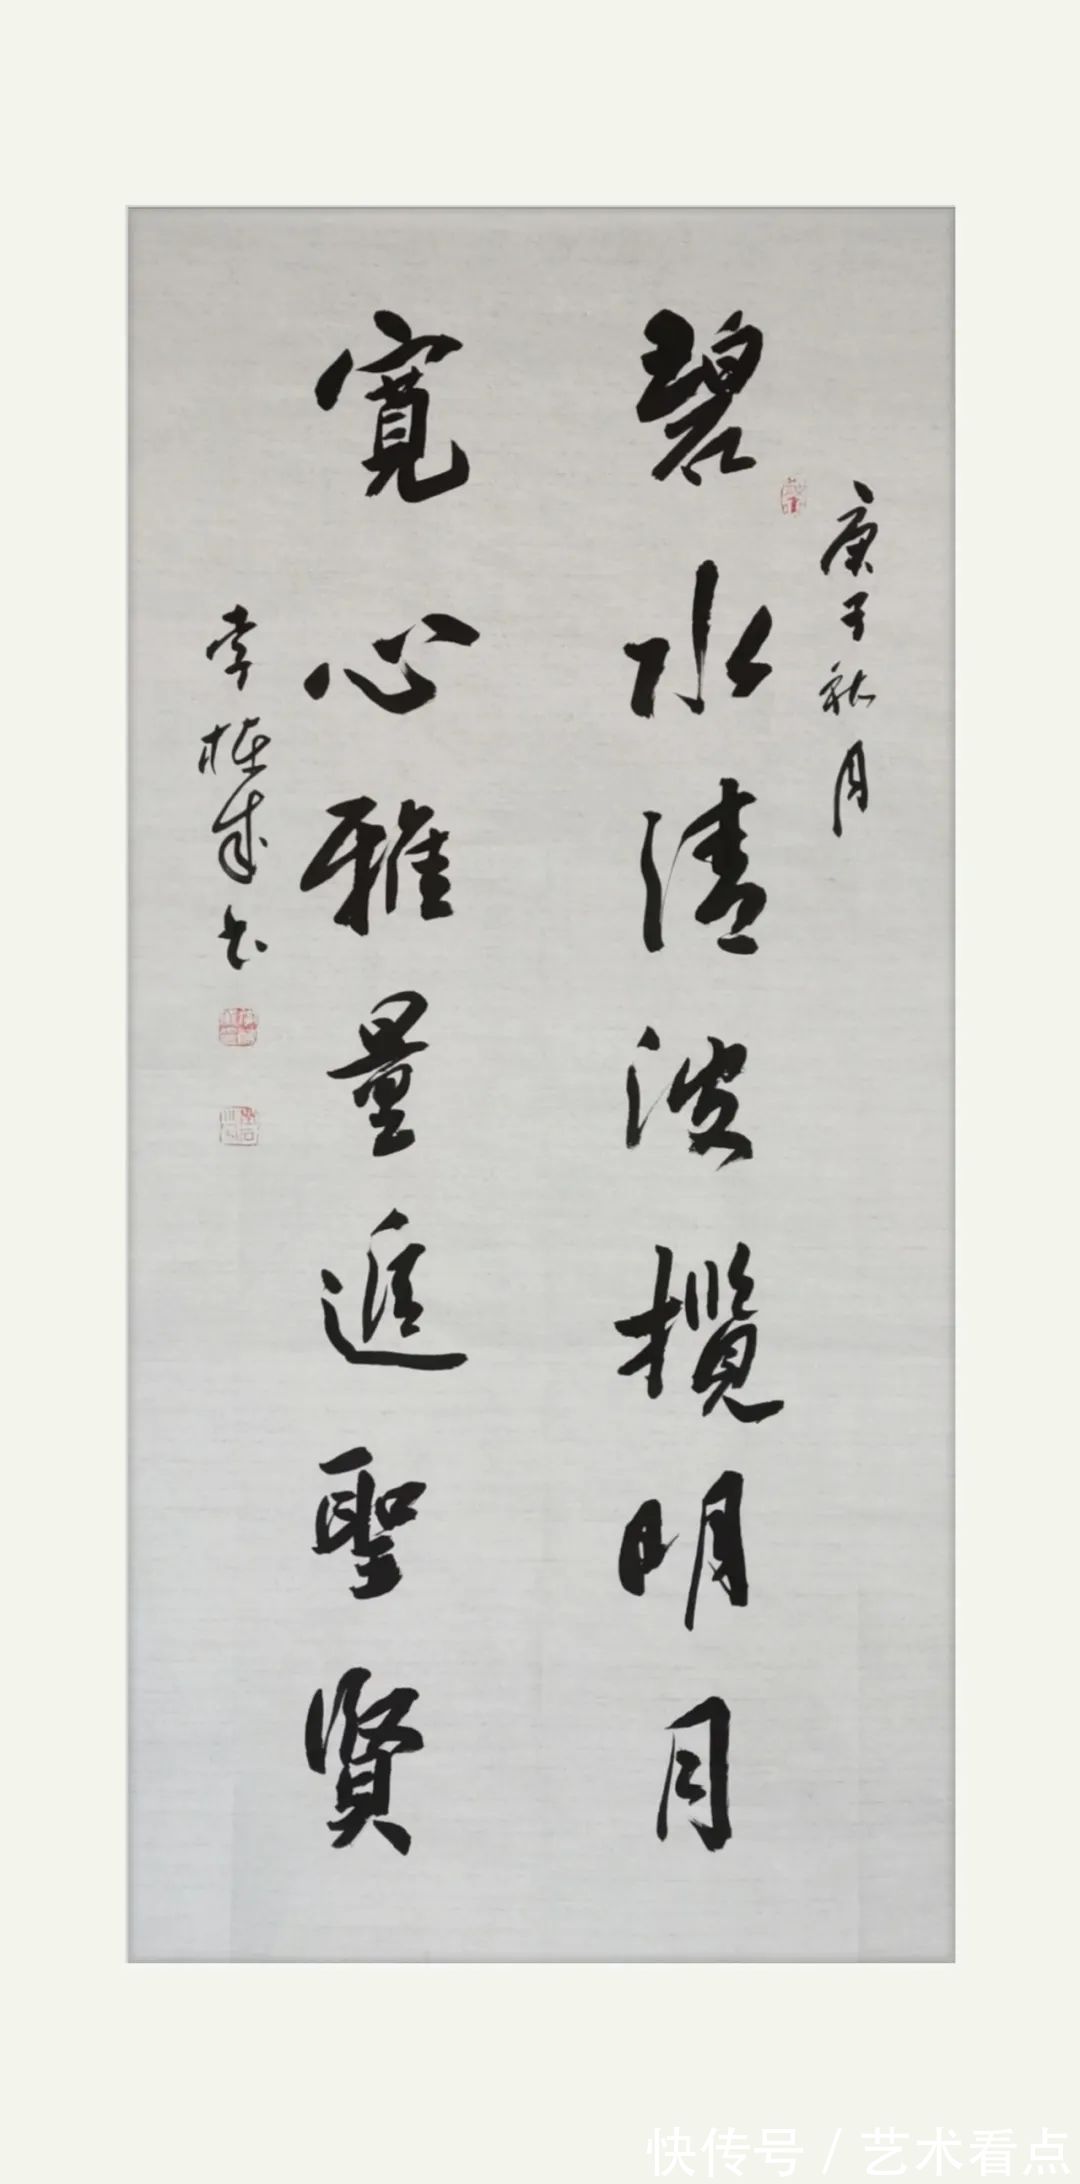 庚子秋月
碧水清波攬明月
寬心雅量進聖賢
李栋成书
快传号 / 艺术看点